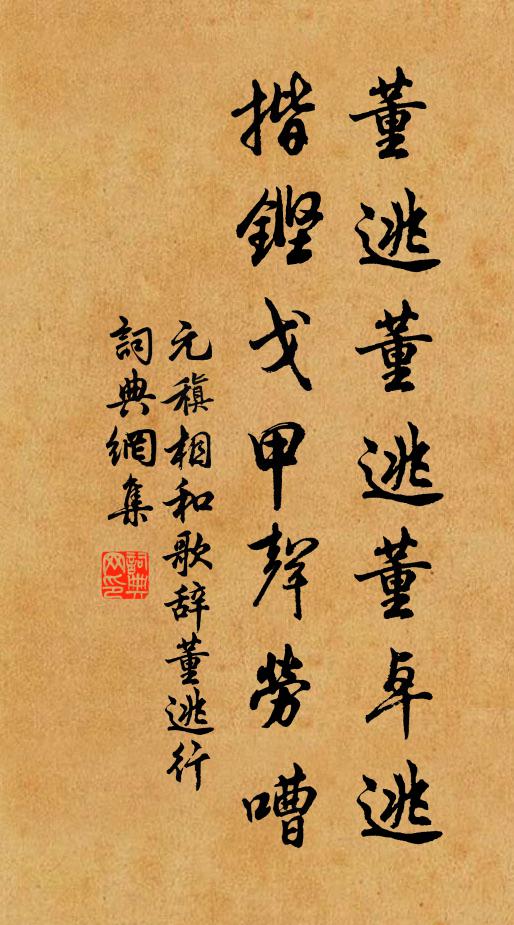 董逃董逃董卓逃
揩鏗戈甲聲勞嘈
元稹相和歌辞董逃行
詞典網集
詞典网印